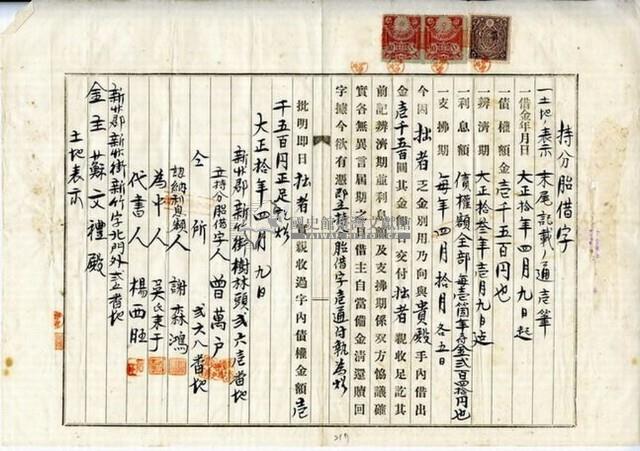 持分胎借字
一土地ノ表示 末尾記載ノ通壱筆
一借金年月日 大正拾年四月九日起
一債權額金壱千五百円也
一辨濟期 大正拾叁年壱月九日迄
一利息額 債權額全部每壱箇年付金弍百四拾円也
一支拂期 每年四月拾月各五日
今因拙者乏金別用乃向與貴殿手內借出
金壱千五百圓其金即日交付拙者親收足訖其
前記辨濟期並利息額及支拂期係双方協議確
實各無異言屆期之日借主自當備金清還贖回
字據今欲有憑即立持分胎借字壱通付執為炤
批明即日拙者等親收過字內債權金額壱
千五百円正足訖炤
大正拾年四月九日
新竹郡新竹街樹林頭弍六壱番地
立持分胎借字人 曾萬戶
仝所 弍六八番地
認納利息額人 謝森鴻
為中人 吳氏束于
代書人 楊西旺
新竹郡新竹街新竹字西門外弍五番地
金主 蘇文禮殿
土地表示
國史館臺灣文獻館
TAIWAN HISTORICA